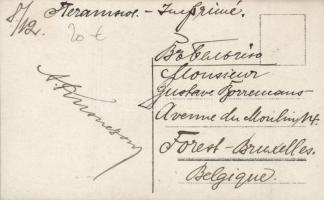 5/12.
Печатное. - Imprimé.
20 €
Въ Бельгію
Monsieur
Gustave Borremans
Avenue du Moulin, 14.
Forest-Bruxelles.
Belgique.